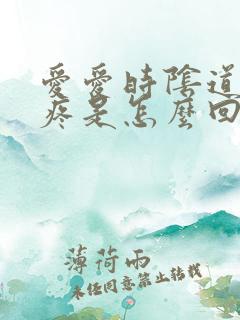 愛愛時陰道
疼是怎麼回
薄荷雨
未经同意禁止转载